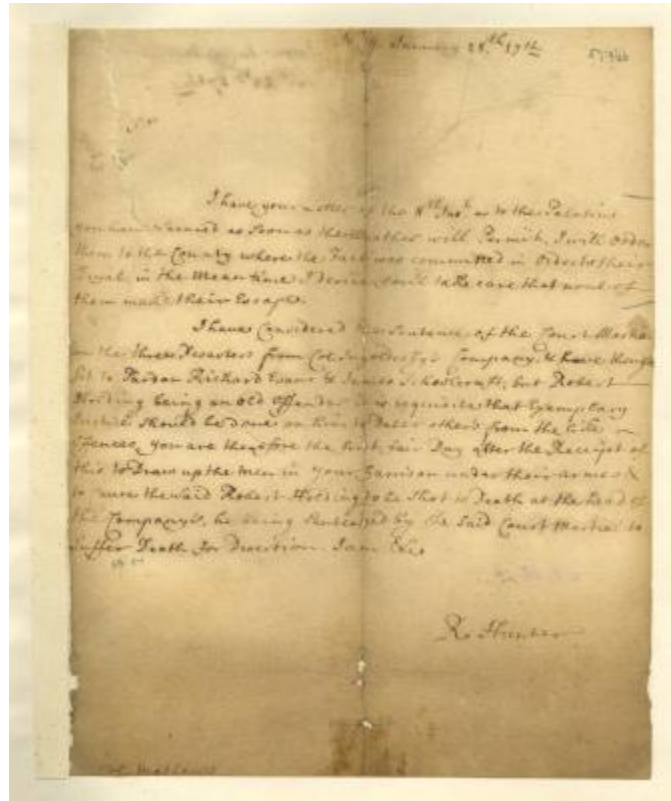 January 28.th 171
I have your Letter of the 8th Inst. as to the Palatins
you have Secured as Soon as the Weather will Permitt, I will Order
them to the County where the Fact was committed in Order to their
Tryal, in the mean time I desire you'l take care that none of
them make their Escape.
I have Considered the Sentence of the Court Martial
on the three Deserters from Col. Ingoldesby's Company, & have thought
fit to Pardon Richard Evans & James Schoolcraft, but Robert
Holding being an old Offender it is requisite that Exemplary
Justice should be done on him to Deter others from the like
Offences, you are therefore the first fair Day after the Receipt of
this to Draw up the men in your Garrison under their armes &
to cause the said Robert Holding to be Shot to Death at the head of
the Companys, he being Sentenced by the Said Court Martial to
Suffer Death for Desertion. I am &c
Ro Hunter
Col. Mathews